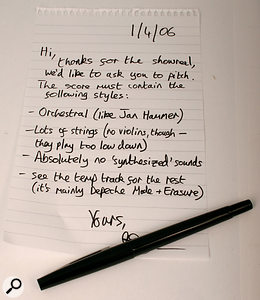 1/4/06
Hi,
thanks for the showreel,
we'd like to ask you to pitch.
The score must contain the
following styles:
- Orchestral (like Jan Hammer)
- Lots of strings (no violins, though —
they play too low down)
- Absolutely no 'synthesized' sounds
- See the temp track for the rest
(it's mainly Depeche Mode + Erasure)
Yours,